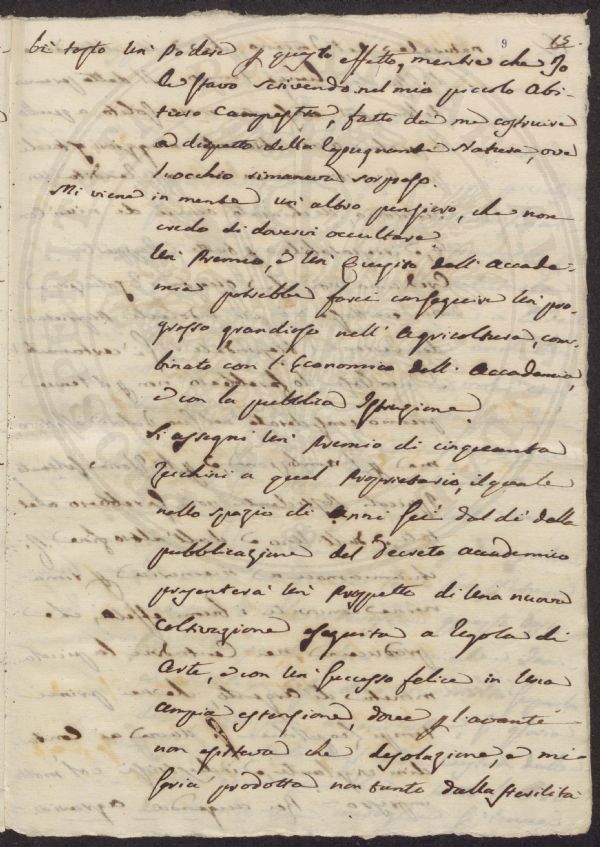 9 65.
bi tosto un' Podere p questo effetto, mentre che Io
le stavo scrivendo nel mio piccolo abi-
turo Campestre, fatto da me costruire
a dispetto della repugnante Natura, ove
l'occhio rimaneva sorpreso.
Mi viene in mente un' altro pensiero, che non
credo di dovervi occultare
Un' Premio, e un' Giugero dell' Accade-
mia potrebbe farci conseguire un' pro-
gresso grandioso nell' Agricoltura, com-
binato con l'Economico dell' Accademia,
e con la pubblica Istruzione.
Si assegni un' Premio di cinquanta
Zecchini a quel Proprietario, il quale
nello spazio di anni sei dal dì della
pubblicazione del Decreto accademico
presenterà un' Prospetto di una nuova
Coltivazione eseguita a regola di
Arte, e con un' successo felice in una
ampia estensione, dove p l'avanti
non esisteva che desolazione, e mi-
seria prodotta non tanto dalla sterilità